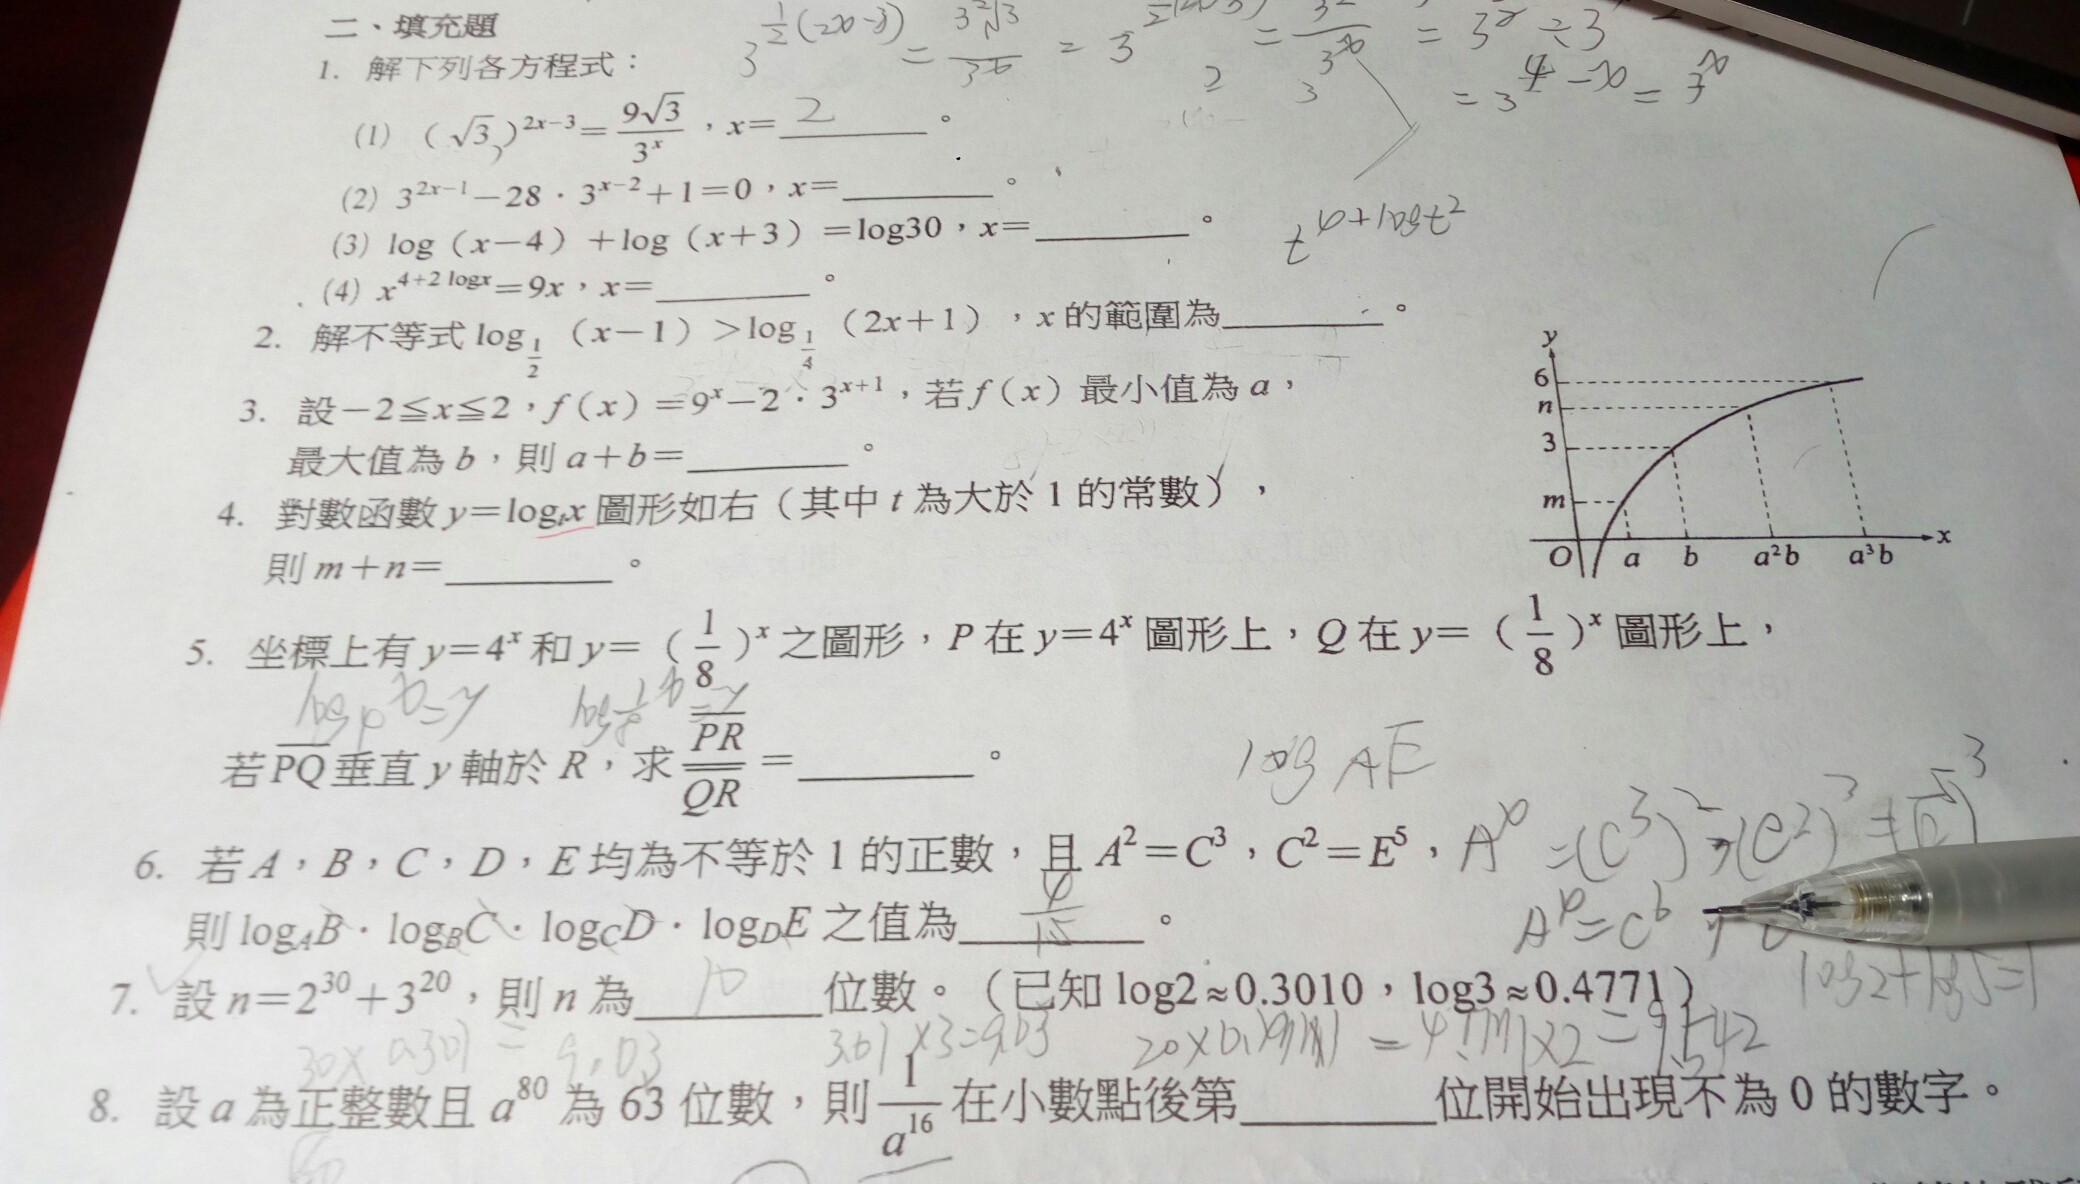 二、填充題
1. 解下列各方程式：
3^{\frac{1}{2}(2x-3)} = \frac{3^2\sqrt{3}}{3^x} = 3
= 3^{4-x} = 3^x
(1) (√3)^{2x-3} = \frac{9√3}{3^x}，x= 2 。
(2) 3^{2x-1}－28．3^{x-2}＋1＝0，x=______。
(3) log（x－4）＋log（x＋3）＝log30，x=______。
t^{4+logt^2}
(4) x^{4+2 logx}＝9x，x=______。
2. 解不等式 log_{\frac{1}{2}}（x－1）＞log_{\frac{1}{4}}（2x＋1），x 的範圍為______。
3. 設－2≦x≦2，f（x）＝9^x－2．3^{x+1}，若 f（x）最小值為 a，
最大值為 b，則 a＋b＝______。
4. 對數函數 y＝log_t x 圖形如右（其中 t 為大於 1 的常數），
則 m＋n＝______。
y
6
n
3
m
O a b a²b a³b x
5. 坐標上有 y＝4^x 和 y＝（\frac{1}{8}）^x 之圖形，P 在 y＝4^x 圖形上，Q 在 y＝（\frac{1}{8}）^x 圖形上，
若 \overline{PQ} 垂直 y 軸於 R，求 \frac{\overline{PR}}{\overline{QR}}＝______。
log AE
6. 若 A，B，C，D，E 均為不等於 1 的正數，且 A²＝C³，C²＝E⁵，
則 log_A B．log_B C．log_C D．log_D E 之值為 \frac{4}{15} 。
log2+log5=1
7. 設 n＝2^{30}＋3^{20}，則 n 為 10 位數。（已知 log2≈0.3010，log3≈0.4771）
30× 0.301 = 9.03 3.01×3=9.03 = 9.542
8. 設 a 為正整數且 a^{80} 為 63 位數，則 \frac{1}{a^{16}} 在小數點後第______位開始出現不為 0 的數字。